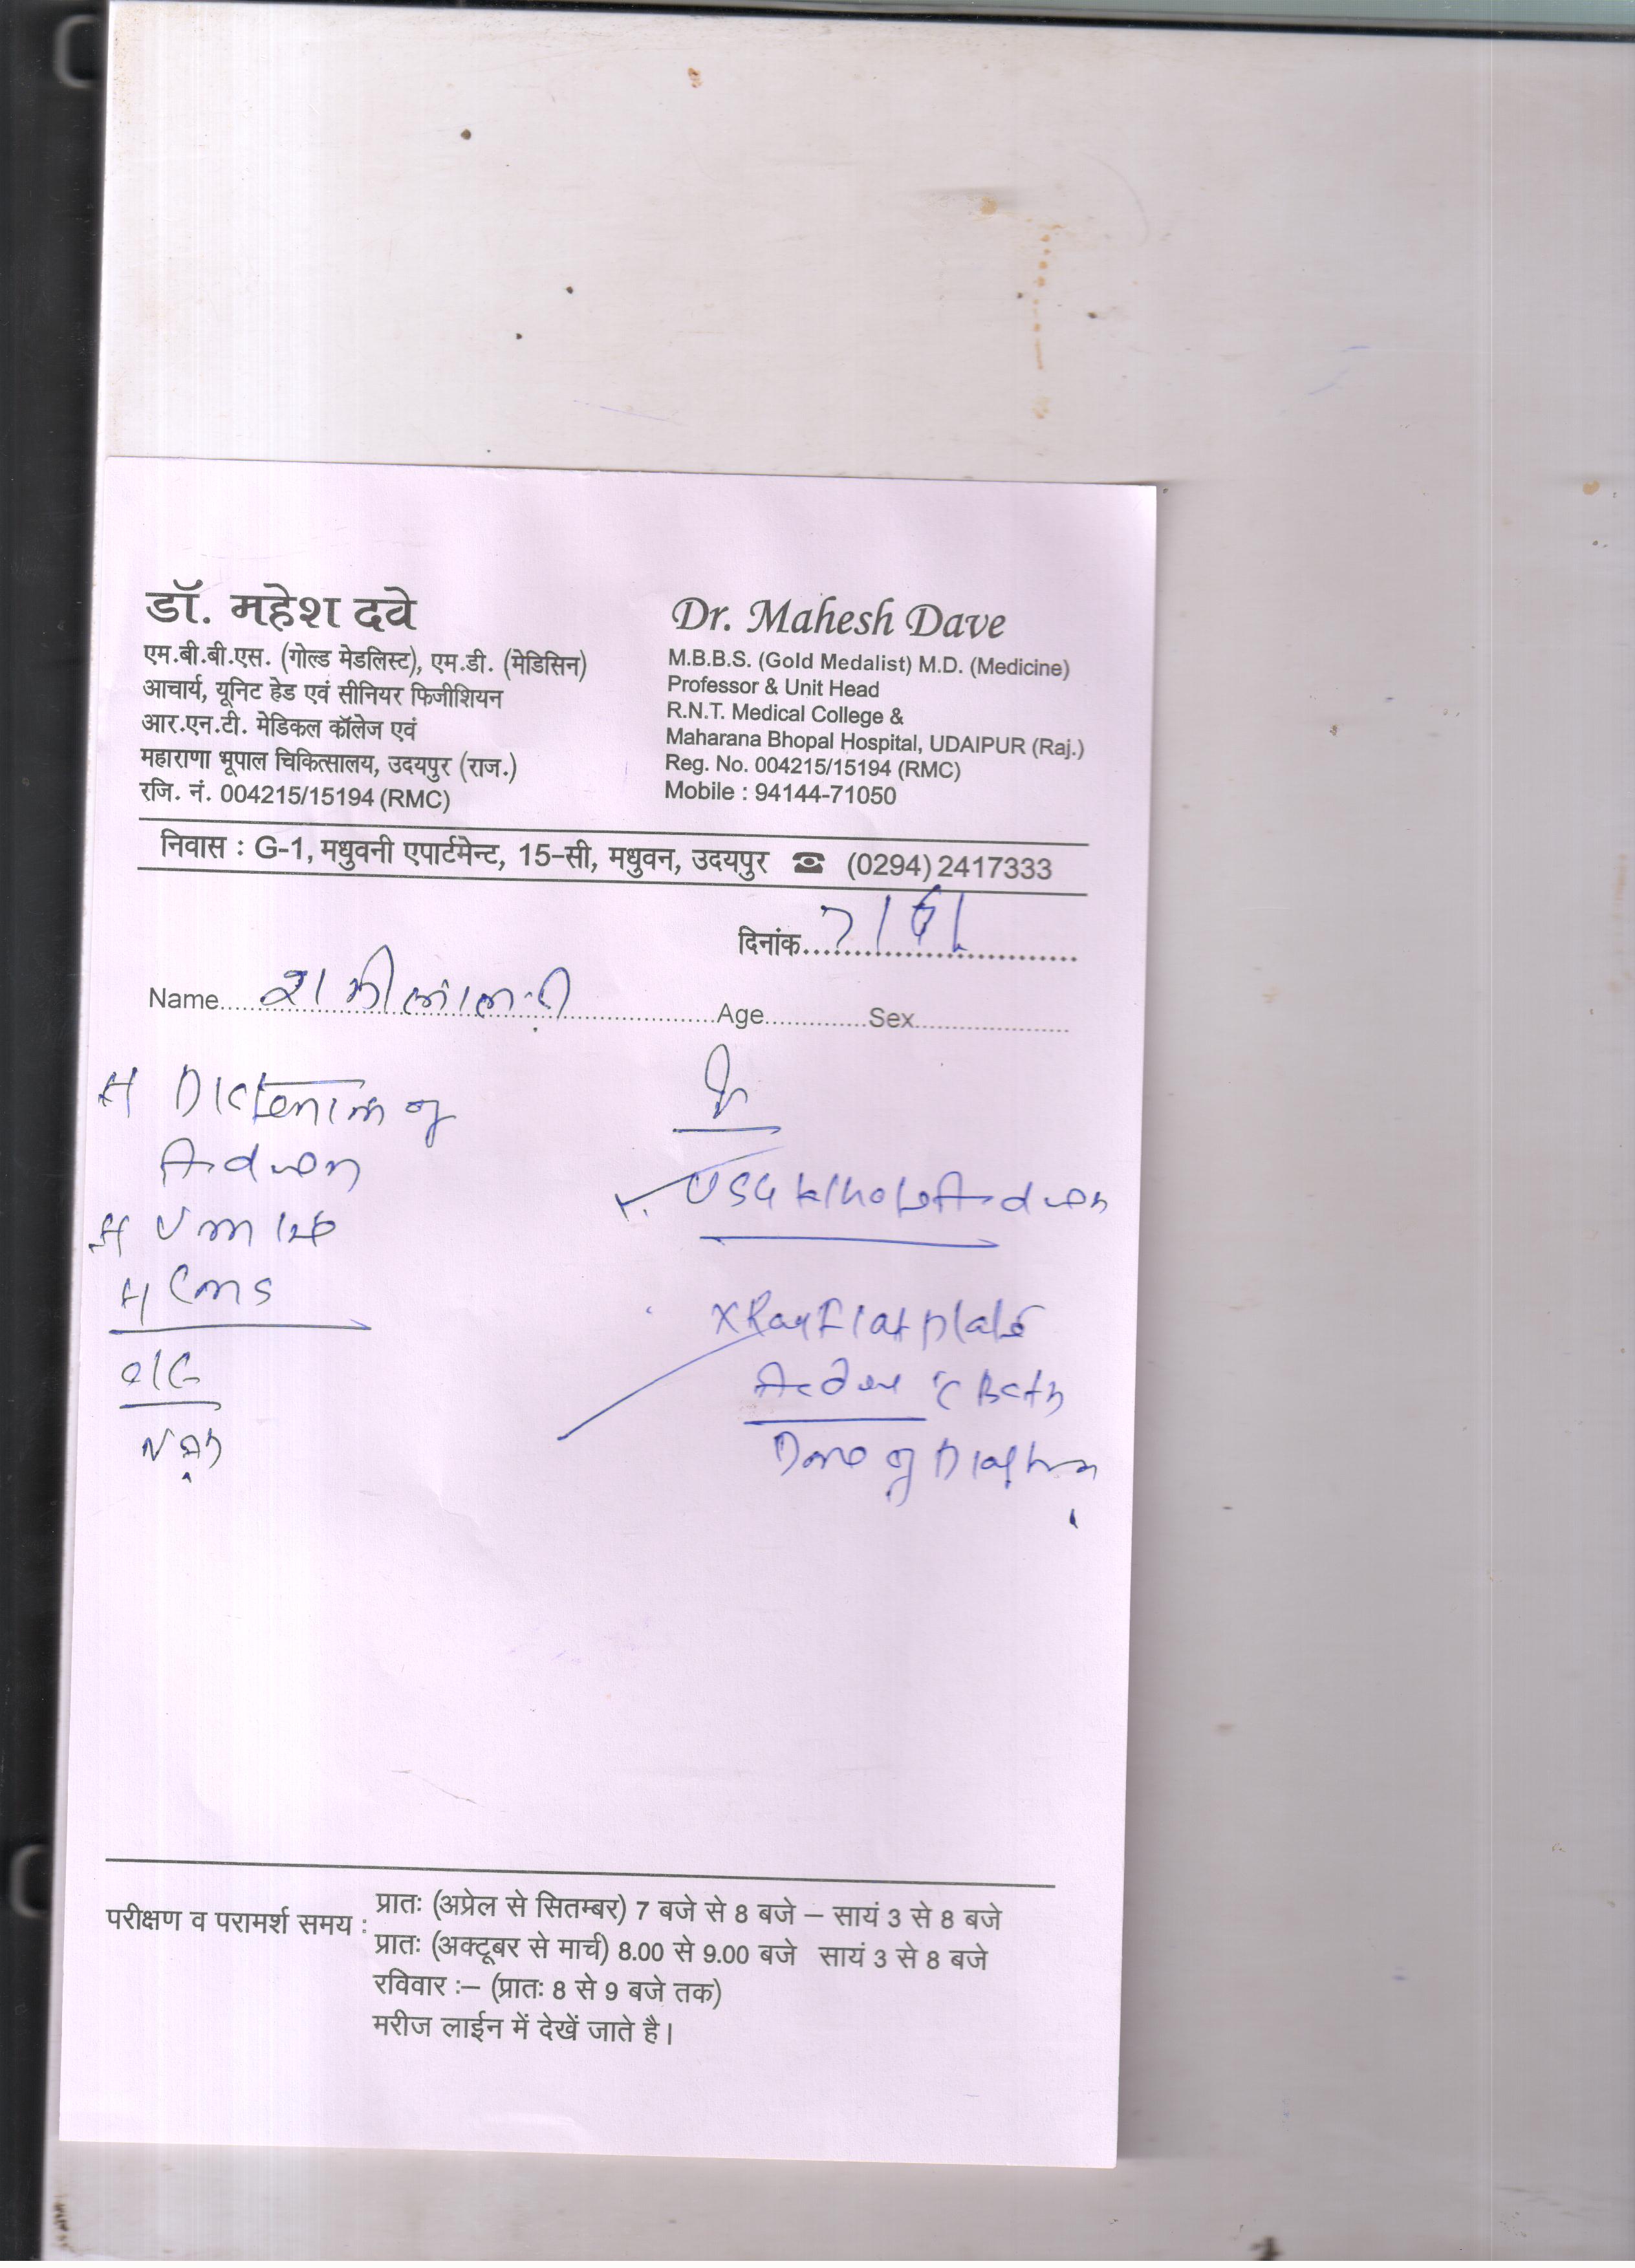 डॉ. महेश दवे
एम.बी.बी.एस. (गोल्ड मेडलिस्ट), एम.डी. (मेडिसिन)
आचार्य, यूनिट हेड एवं सीनियर फिजीशियन
आर.एन.टी. मेडिकल कॉलेज एवं
महाराणा भूपाल चिकित्सालय, उदयपुर (राज.)
रजि. नं. 004215/15194 (RMC)
Dr. Mahesh Dave
M.B.B.S. (Gold Medalist) M.D. (Medicine)
Professor & Unit Head
R.N.T. Medical College &
Maharana Bhopal Hospital, UDAIPUR (Raj.)
Reg. No. 004215/15194 (RMC)
Mobile : 94144-71050
निवास : G-1, मधुवनी एपार्टमेन्ट, 15-सी, मधुवन, उदयपुर ☎ (0294) 2417333
दिनांक
Name Age Sex
of
USG
X Ray Flat Plate
of
परीक्षण व परामर्श समय : प्रातः (अप्रेल से सितम्बर) 7 बजे से 8 बजे – सायं 3 से 8 बजे
प्रातः (अक्टूबर से मार्च) 8.00 से 9.00 बजे सायं 3 से 8 बजे
रविवार :– (प्रातः 8 से 9 बजे तक)
मरीज लाईन में देखें जाते है।